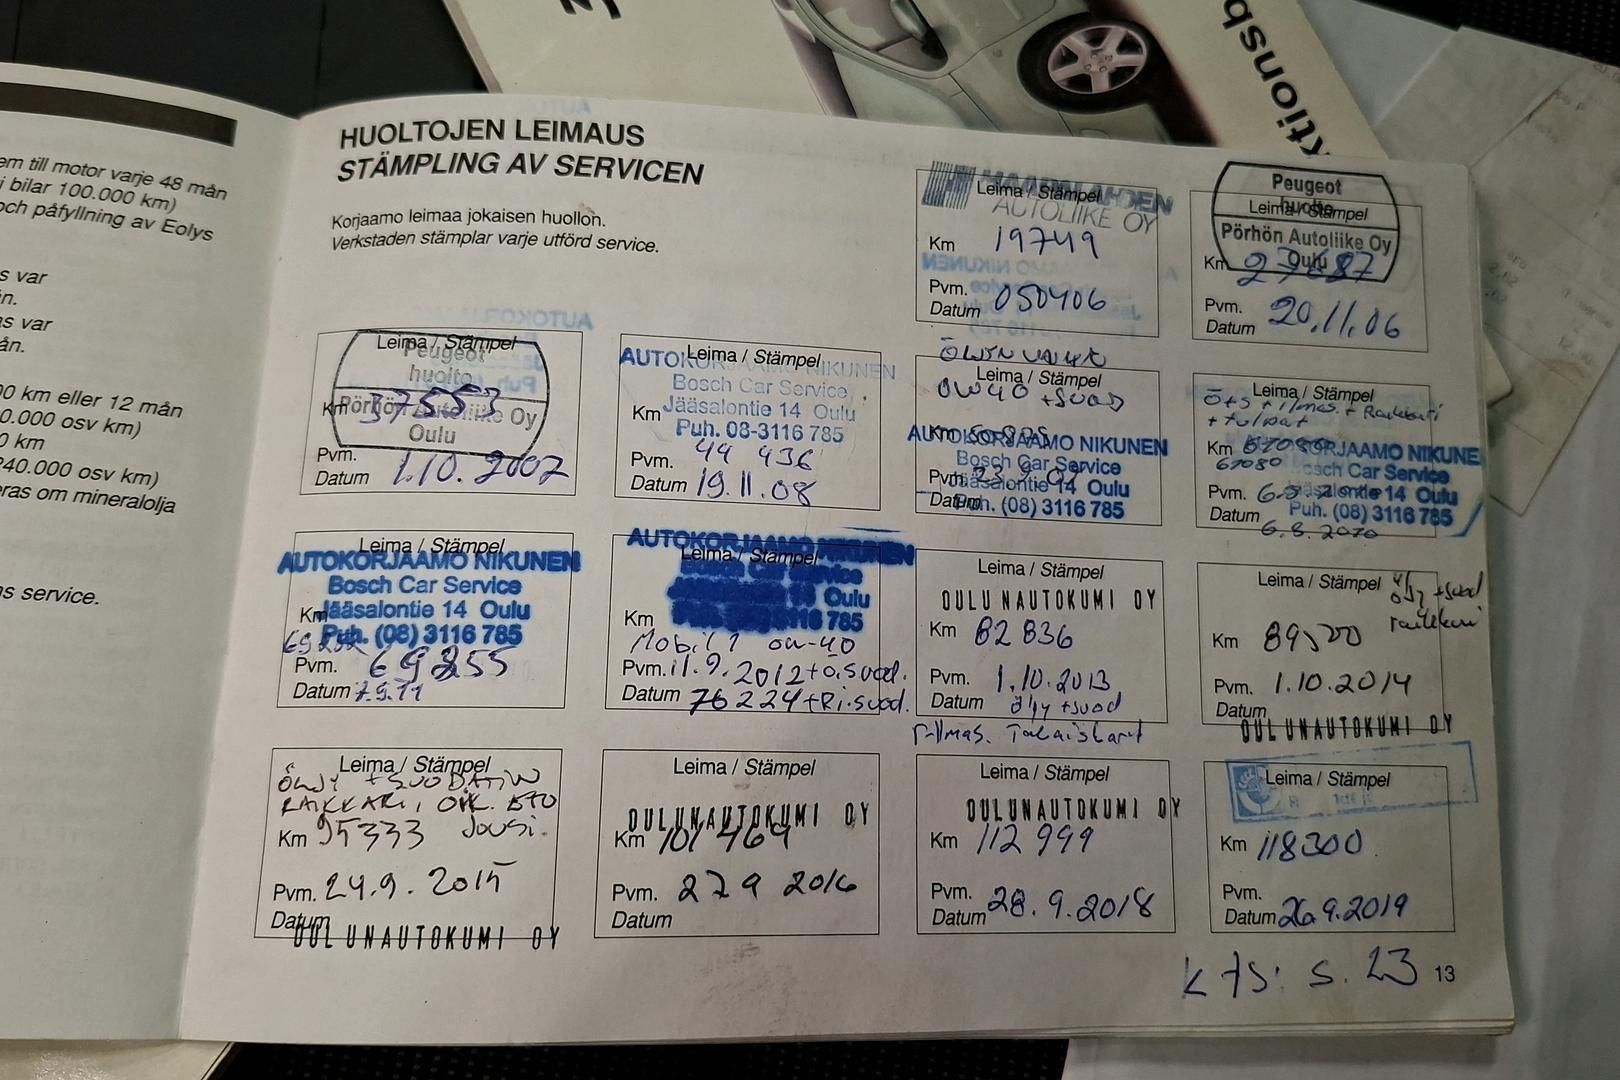 em till motor varje 48 mån
i bilar 100.000 km)
och påfyllning av Eolys
s var
n.
as var
ån.
00 km eller 12 mån
0.000 osv km)
0 km
240.000 osv km)
eras om mineralolja
ns service.
ktionsb
HUOLTOJEN LEIMAUS
STÄMPLING AV SERVICEN
Korjaamo leimaa jokaisen huollon.
Verkstaden stämplar varje utförd service.
Leima / Stämpel
AUTOLIIKE OY
Km 19749
Pvm.
Datum 050406
Peugeot
huolto
Leima / Stämpel
Pörhön Autoliike Oy
Oulu
Km 27687
Pvm.
Datum 20.11.06
Leima / Stämpel
Peugeot
huolto
Km 37553
Pörhön Autoliike Oy
Oulu
Pvm.
Datum 1.10.2007
Leima / Stämpel
AUTOKORJAAMO NIKUNEN
Bosch Car Service
Km Jääsalontie 14 Oulu
Puh. 08-3116 785
Pvm. 44 436
Datum 19.11.08
Leima / Stämpel
0W40 +SUOD
Km
AUTOKORJAAMO NIKUNEN
Bosch Car Service
Pvm.
Jääsalontie 14 Oulu
Datum
Puh. (08) 3116 785
Leima / Stämpel
Ö+S + ilmas. + Raikkari
+ tulpat
Km
AUTOKORJAAMO NIKUNEN
67080
Bosch Car Service
Pvm.
Jääsalontie 14 Oulu
Datum
Puh. (08) 3116 785
6.8.2010
Leima / Stämpel
AUTOKORJAAMO NIKUNEN
Bosch Car Service
Km
Jääsalontie 14 Oulu
Puh. (08) 3116 785
Pvm. 69255
Datum 7.9.11
AUTOKORJAAMO NIKUNEN
Leima / Stämpel
Bosch Car Service
Jääsalontie 14 Oulu
Km
Puh. (08) 3116 785
Mobil 1 0w-40
Pvm. 11.9.2012+ö.suod.
Datum 76224+Ri.suod.
Leima / Stämpel
OULUNAUTOKUMI OY
Km 82 836
Pvm. 1.10.2013
Datum öljy +suod
r-ilmas. Takaiskarit
Leima / Stämpel
öljy +suod
raikkari
Km 89500
Pvm. 1.10.2014
Datum
OULUNAUTOKUMI OY
Leima / Stämpel
ÖLJY +SUODATIN
RAIKKARI, OIK. ETU
Jousi.
Km 95333
Pvm. 24.9.2015
Datum
OULUNAUTOKUMI OY
Leima / Stämpel
OULUNAUTOKUMI OY
Km 101 469
Pvm. 27 9 2016
Datum
Leima / Stämpel
OULUNAUTOKUMI OY
Km 112 999
Pvm.
Datum 28.9.2018
Leima / Stämpel
Km 118300
Pvm.
Datum 26.9.2019
kts: s. 23
13